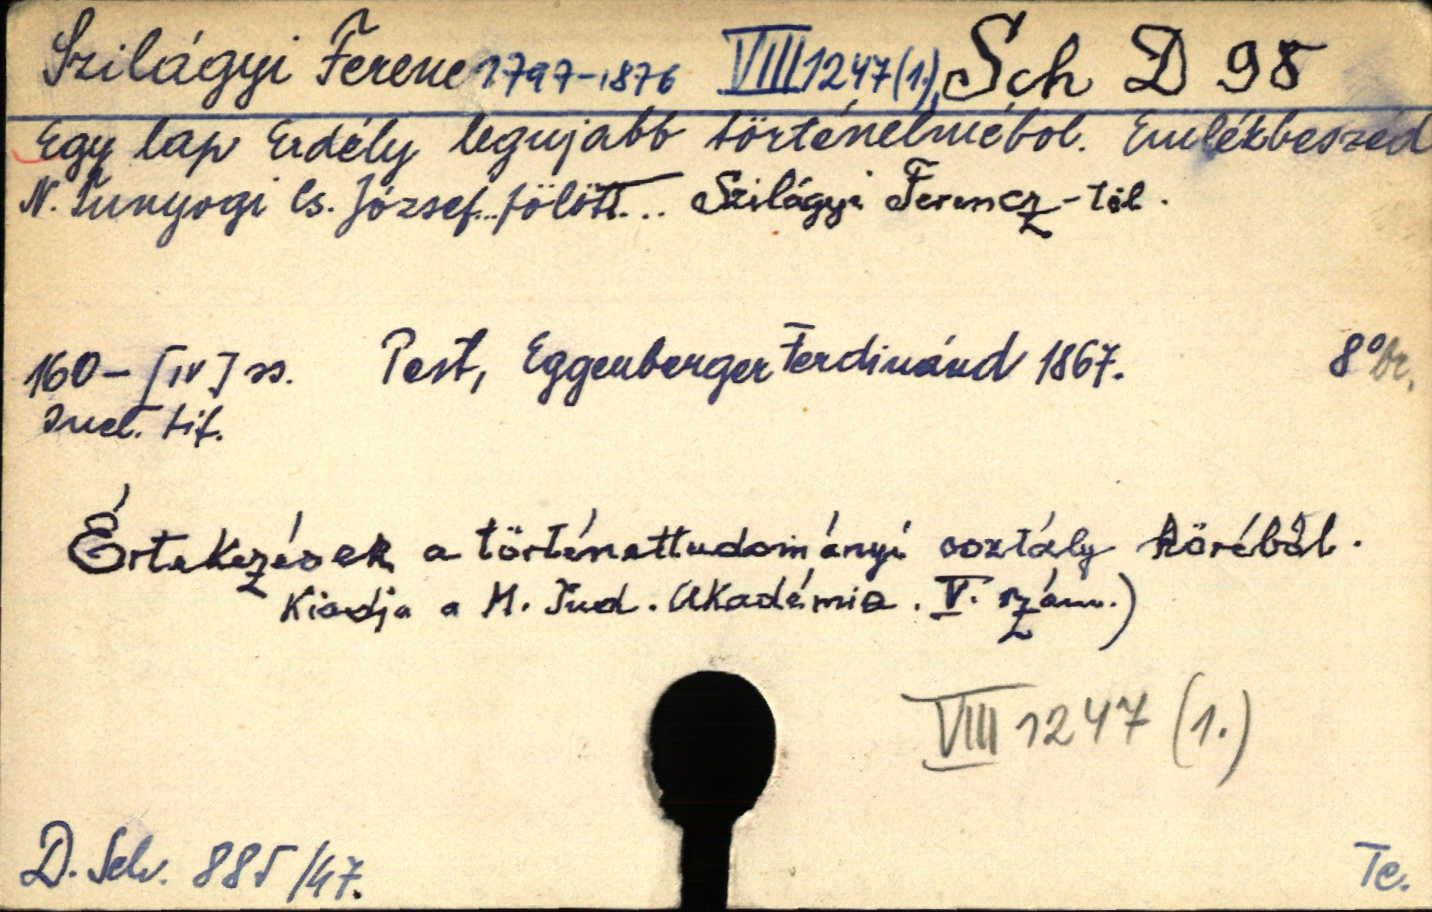 Szilágyi Ferenc 1797-1876 VIII 1247(1.), Sch D 98
Egy lap Erdély legujabb történelméből. Emlékbeszéd
N. Tunyogi Cs. József...fölött... Szilágyi Ferencz-től.
160-[IV] ss. Pest, Eggenberger Ferdinánd 1867. 8° br.
Incl. tit.
Értekezések a történettudományi osztály köréből.
Kiadja a M. Tud. Akadémia. V. szám.)
VIII 1247 (1.)
D. Sch. 885/47.
Te.